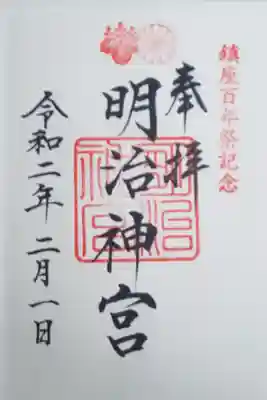 鎮座百年祭記念
奉拝
明治神宮
令和二年二月一日